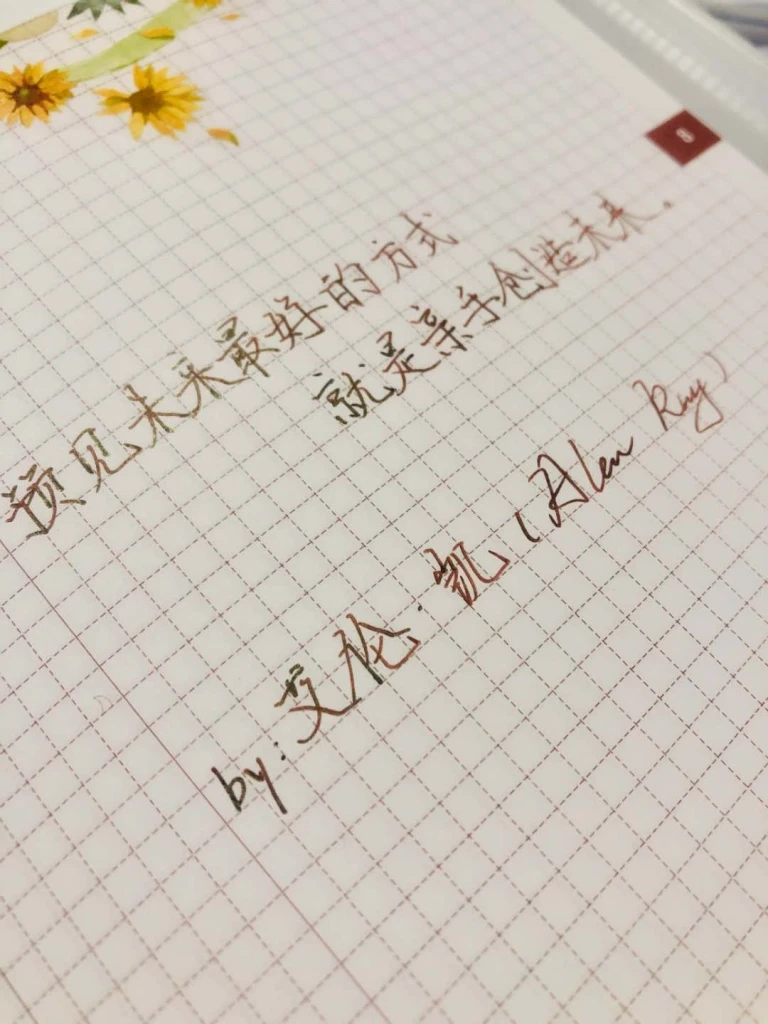 8
预见未来最好的方式
就是亲手创造未来。
by:艾伦·凯(Alen Kay)